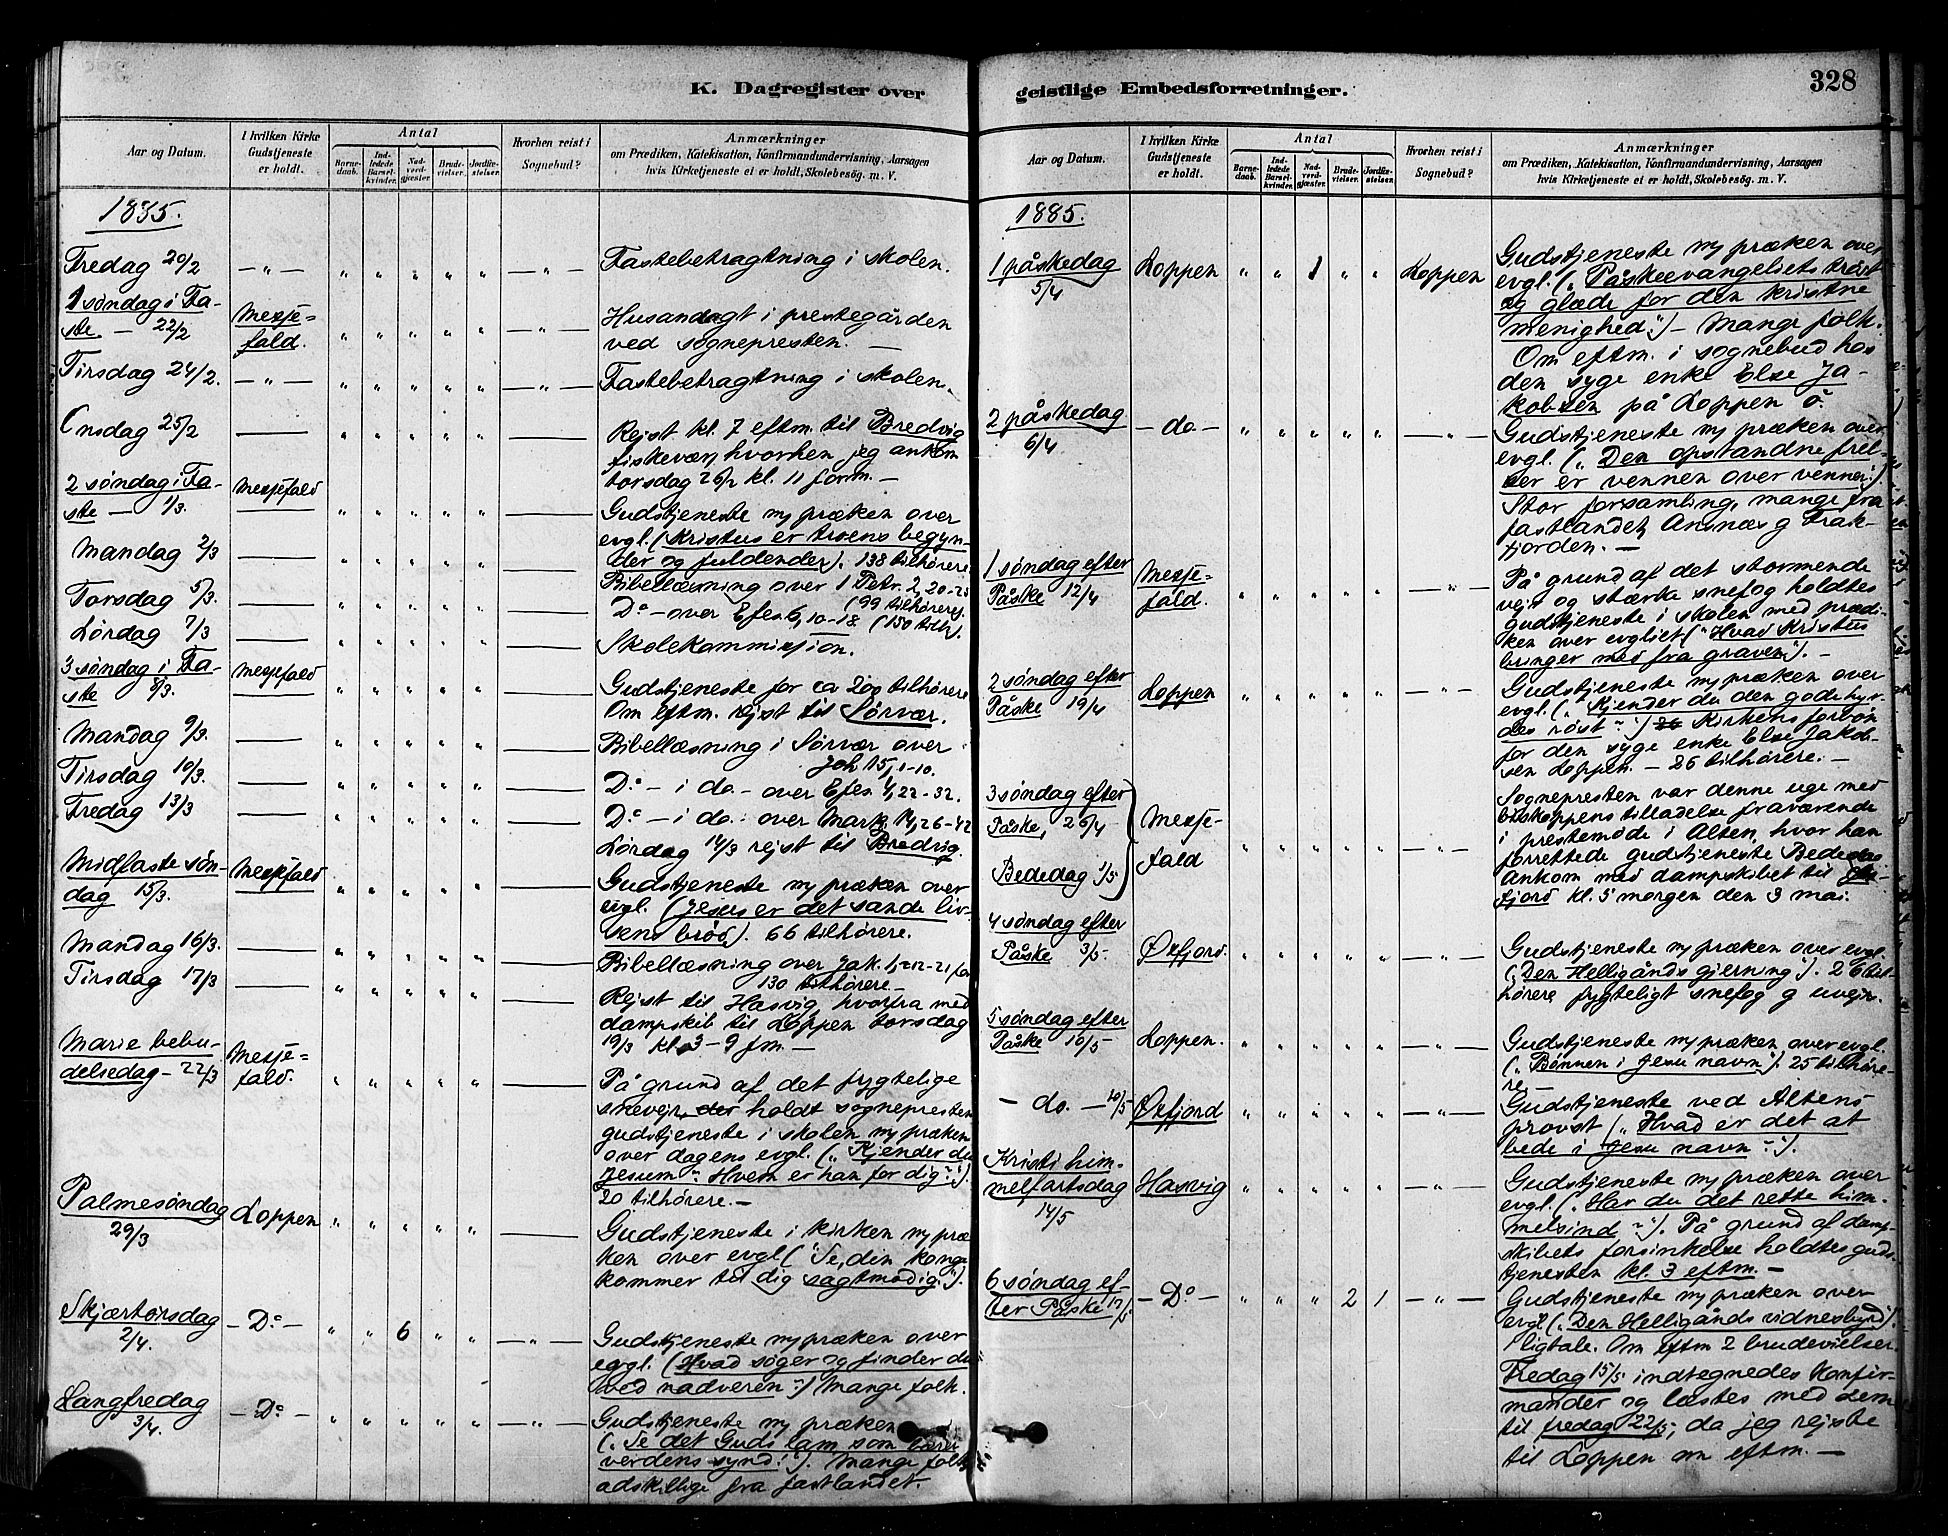 K. Dagregister over
Aar og Datum.
I hvilken Kirke Gudstjeneste er holdt.
Antal
Barnedaab.
Indledede Barselkvinder.
Nadverdgjæster.
Brudevielser.
Jordfæstelser.
Hvorhen reist i Sognebud?
Anmærkninger
om Prædiken, Katekisation, Konfirmandundervisning, Aarsagen
hvis Kirketjeneste ei er holdt, Skolebesøg. m. V.
1885.
Fredag 20/2 — " — " " " " " — " — Fastebetragtning i skolen.
1 søndag i Fa-
ste — 22/2 Messe-
fald. " " " " " — " — Husandagt i prestegården
ved sognepresten. —
Tirsdag 24/2. — " — " " " " " — " — Fastebetragtning i skolen.
Onsdag 25/2 — " " " " " — Rejst kl. 7 eftm. til Bredvig
fiskevær, hvorhen jeg ankom
torsdag 26/2 kl. 11 form. —
2 søndag i Fa-
ste — 1/3. Messefald " " " " " — Gudstjeneste m præken over
evgl. (Kristus er troens begyn-
der og fuldender). 138 tilhørere.
Mandag 2/3 — " " " " " — Bibellæsning over 1 Petr. 2, 20-25
(99 tilhørere).
Torsdag 5/3. — " " " " " — Do — over Efes 6, 10-18 (150 tilh).
Lørdag 7/3 — " " " " " — Skolekommission.
3 søndag i Fa-
ste 8/3. Messefald " " " " " — Gudstjeneste for ca 200 tilhørere
Om eftm. rejst til Sørvær.
Mandag 9/3. — " " " " " — Bibellæsning i Sørvær over
Joh 15, 1-10.
Tirsdag 10/3. — " " " " " — Do — i do. — over Efes 4, 22-32.
Fredag 13/3 — " " " " " — Do — i do. over Mark. 14, 26-42
Lørdag 14/3 rejst til Bredvig.
Midfaste søn-
dag 15/3. Messefald " " " " " — Gudstjeneste m præken over
evgl. (Jesus er det sande liv-
sens brød). 66 tilhørere.
Mandag 16/3. — " " " " " — Bibellæsning over Jak. 1, 12-21 for
130 tilhørere —
Tirsdag 17/3 — " " " " " — Rejst til Hasvig, hvorfra med
dampskib til Loppen torsdag
19/3 kl. 3 — 9 fm. —
Marie bebu-
delsedag — 22/3 Messe-
fald. " " " " " — På grund af det frygtelige
snevejr, holdt sognepresten
gudstjeneste i skolen m præken
over dagens evgl. („Kjender du
Jesum“. Hvem er han for dig?“).
20 tilhørere. —
Palmesøndag
29/3 Loppen " " " " " Gudstjeneste i kirken m præ-
ken over evgl ("Se, din konge
kommer til dig sagtmodig.").
Skjærtorsdag
2/4. — Do — " " 6 " " — " — Gudstjeneste m præken over
evgl. (Hvad søger og finder du
ved nadveren?“) Mange folk.
Langfredag
3/4. — Do — " " " " " — " — Gudstjeneste m præken
(„Se det Guds lam som bærer
verdens synd!“). Mange folk
adskillige fra fastlandet.
geistlige Embedsforretninger.
328
Aar og Datum.
I hvilken Kirke Gudstjeneste er holdt.
Antal
Barnedaab.
Indledede Barselkvinder.
Nadverdgjæster.
Brudevielser.
Jordfæstelser.
Hvorhen reist i Sognebud?
Anmærkninger
om Prædiken, Katekisation, Konfirmandundervisning, Aarsagen
hvis Kirketjeneste ei er holdt, Skolebesøg. m. V.
1885.
1 påskedag
5/4 Loppen " " 1 " " Loppen Gudstjeneste m præken over
evgl. („Påskeevangeliets trøst
og glæde for den kristne
menighed“.) — Mange folk.
Om eftm. i sognebud hos
den syge enke Else Ja-
kobsen på Loppen ø.
2 påskedag
6/4 — do. — " " " " " — " — Gudstjeneste m præken over
evgl. („Den opstandne frel-
ser er vennen over venner“).
Stor forsamling, mange fra
fastlandet, Ansnæs g Frak-
fjorden. —
1 søndag efter
Påske 12/4 Messe-
fald. " " " " " — " — På grund af det stormende
vejr og stærke snefog holdtes
gudstjeneste i skolen med prædi-
ken over evgliet ("Hvad Kristus
bringer med fra graven"). —
2 søndag efter
Påske 19/4 Loppen " " " " " — " — Gudstjeneste m præken over
evgl. („Kjender du den gode hyr-
des røst?“) Kirkens forbøn
for den syge enke Else Jakob-
sen Loppen. — 26 tilhørere. —
3 søndag efter
Påske, 26/4
Bededag 1/5 Messe-
fald " " " " " — " — Sognepresten var denne uge med
biskoppens tilladelse fraværende
i prestemøde i Alten, hvor han
forrettede gudstjeneste Bededag
ankom med dampskibet til Øx-
fjord kl. 5 morgen den 3 mai.
4 søndag efter
Påske 3/5. Øxfjord. " " " " " — " — Gudstjeneste m præken over evgl.
(„Den Helligånds gjerning“). 26 til-
hørere frygteligt snefog g uvejr.
5 søndag efter
Påske 10/5 Loppen. " " " " " — " — Gudstjeneste m præken over evgl.
(„Bønnen i Jesu navn“). 25 tilhøre-
re —
— do. — 10/5 Øxfjord " " " " " — " — Gudstjeneste ved Altens
provst („Hvad er det at
bede i Jesu navn?“).
Kristi him-
melfartsdag
14/5 Hasvig " " " " " — " — Gudstjeneste m præken over
evgl. („Har du det rette him-
melsind?“). På grund af damp-
skibets forsinkelse holdtes guds-
tjenesten kl. 3 eftm. —
6 søndag ef-
ter Påske 17/5 — Do — " " " 2 1 — " — Gudstjeneste m præken over
evgl („Den Helligånds vidnesbyrd“).
ligtale. Om eftm 2 brudevielser.
Fredag 15/5 indtegnedes konfir-
mander og læstes med dem
til fredag 22/5, da jeg rejste
til Loppen om eftm. —